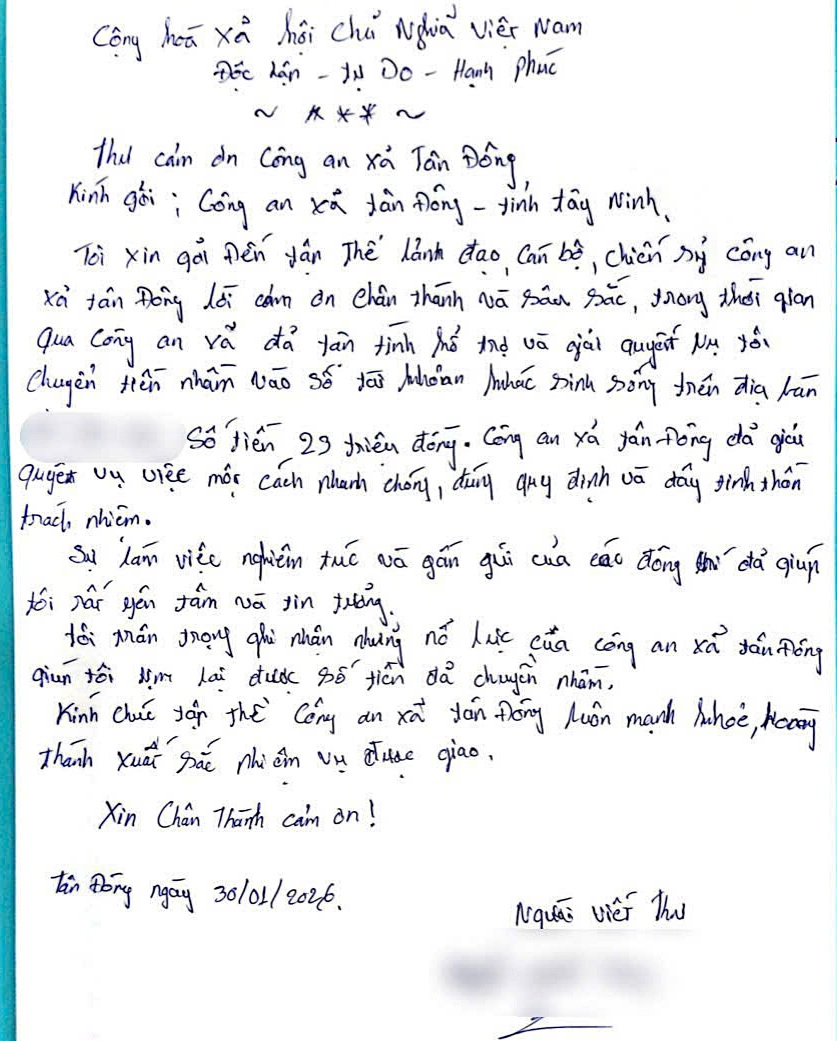 Cộng hoà xả hội Chủ Nghĩa Việt Nam
Độc lập - tự Do - Hạnh phúc
~ *** ~
Thư cảm ơn Công an xả Tân Đông
Kính gởi ; Công an xả tân Đông - tỉnh tây Ninh.
Tôi xin gởi Đến tập Thể lảnh đạo, Cán bộ, chiến sỹ công an
xả tân Đông lời cám ơn chân thành và sâu sắc, trong thời gian
qua Công an xả đả tận tình hổ trợ và giải quyết vụ tôi
Chuyển tiền nhầm vào số tài khoản khác sinh sống trên địa bàn
Số tiền 29 triệu đồng. Công an xả tân Đông đả giải
quyết vụ việc một cách nhanh chóng, đúng quy định và đầy tinh thần
trách nhiệm.
Sự làm việc nghiêm túc và gần gủi của các đồng chí đả giúp
tôi rất yên tâm và tin tưởng.
tôi trân trọng ghi nhận những nổ lực của công an xả tân Đông
giúp tôi lại được số tiền đả chuyển nhầm.
Kính chúc tập thể Công an xả tân Đông luôn mạnh khoẻ, Hoàng
thành xuất sắc nhiệm vụ được giao.
Xin Chân Thành cảm ơn!
Tân Đông ngày 30/01/2026.
Người viết thư